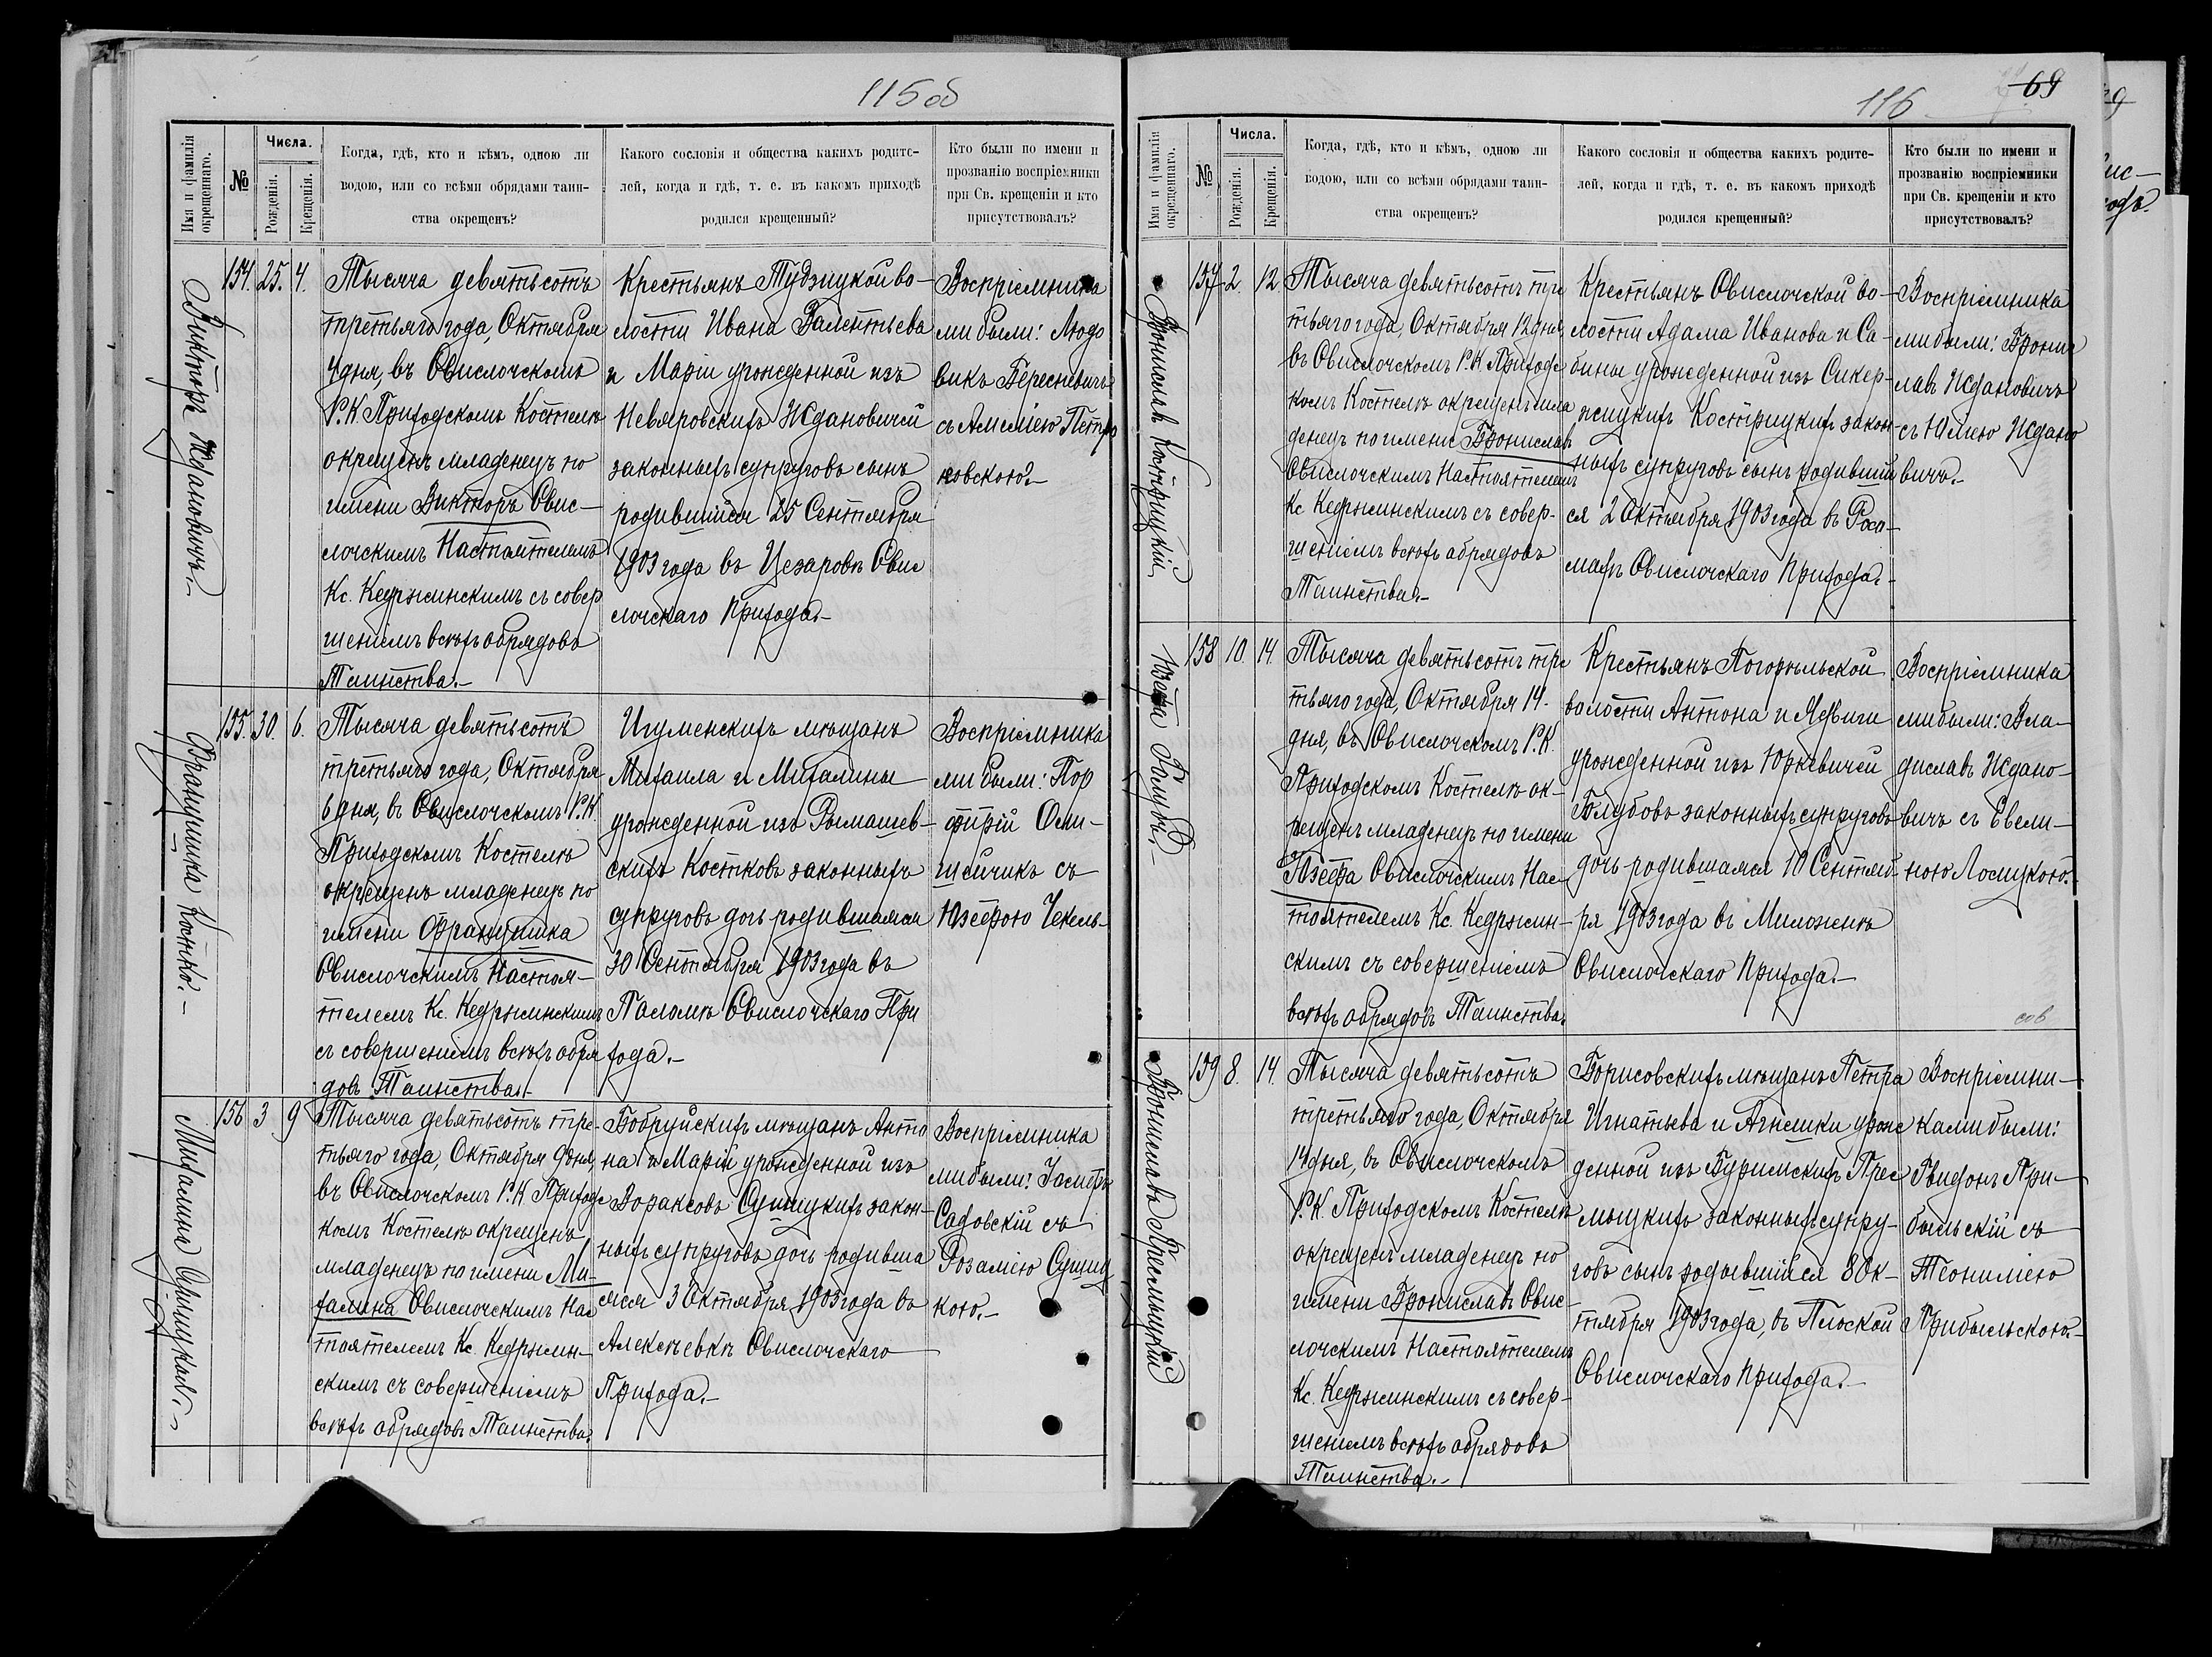 115 об
Имя и фамилія окрещеннаго.
№
Числа.
Рожденія.
Крещенія.
Когда, гдѣ, кто и кѣмъ, одною ли
водою, или со всѣми обрядами таин-
ства окрещенъ?
Какого сословія и общества какихъ родите-
лей, когда и гдѣ, т. е. въ какомъ приходѣ
родился крещенный?
Кто были по имени и
прозванію воспріемники
при Св. крещеніи и кто
присутствовалъ?
Викторъ Ждановичъ.-
154. 25. 4.
Тысяча девятьсотъ
третьяго года, Октября
4 дня, въ Свислочскомъ
Р. К. Приходскомъ Костелѣ
окрещенъ младенецъ по
имени Викторъ Свис-
лочскимъ Настоятелемъ
Кс. Кедржинскимъ съ совер
шеніемъ всѣхъ обрядовъ
Таинства.-
Крестьянъ Тудзицкой во-
лости Ивана Валентьева
и Маріи урожденной изъ
Невяровскихъ Ждановичей
законныхъ супруговъ сынъ
родившійся 25 Сентября
1903 года въ Цезаровѣ Свис
лочскаго прихода.-
Воспріемника
ми были: Людо
викъ Бересневичъ
съ Амеліею Петро
ковскою.-
Францишка Костко.-
155. 30. 6.
Тысяча девятьсотъ
третьяго года, Октября
6 дня, въ Свислочскомъ Р. К.
Приходскомъ Костелѣ
окрещенъ младенецъ по
имени Францишка
Свислочскимъ Настоя-
телемъ Кс. Кедржинскимъ
съ совершеніемъ всѣхъ обря
довъ Таинства.-
Игуменскихъ мѣщанъ
Михаила и Михалины
урожденной изъ Рымашев-
скихъ Костковъ законныхъ
супруговъ дочь родившаяся
30 Сентября 1903 года въ
Паломѣ Свислочскаго При
хода.-
Воспріемника
ми были: Пор
фирій Оли-
шейчикъ съ
Юзефою Чекель-
Михалина Сушицкая.-
156 3 9
Тысяча девятьсотъ тре-
тьяго года, Октября 9 дня,
въ Свислочскомъ Р. К. Приходс
комъ Костелѣ окрещенъ
младенецъ по имени Ми-
халина Свислочскимъ Нас
тоятелемъ Кс. Кедржин-
скимъ съ совершеніемъ
всѣхъ обрядовъ Таинства.
Бобруйскихъ мѣщанъ Анто
на и Маріи урожденной изъ
Вораксовъ Сушицкихъ закон-
ныхъ супруговъ дочь родивша
яся 3 Октября 1903 года въ
Алексѣевкѣ Свислочскаго
Прихода.-
Воспріемника
ми были:
Садовскій съ
Розаліею Сушиц
кою.-
116
69
Имя и фамилія окрещеннаго.
№
Числа.
Рожденія.
Крещенія.
Когда, гдѣ, кто и кѣмъ, одною ли
водою, или со всѣми обрядами таин-
ства окрещенъ?
Какого сословія и общества какихъ родите-
лей, когда и гдѣ, т. е. въ какомъ приходѣ
родился крещенный?
Кто были по имени и
прозванію воспріемники
при Св. крещеніи и кто
присутствовалъ?
Брониславъ Кострицкій
157 2. 12
Тысяча девятьсотъ тре
тьяго года, Октября 12 дня,
въ Свислочскомъ Р. К. Приходс
комъ Костелѣ окрещенъ мла
денецъ по имени Брониславъ
Свислочскимъ Настоятелемъ
Кс Кедржинскимъ съ совер-
шеніемъ всѣхъ обрядовъ
Таинства.-
Крестьянъ Свислочской во-
лости Адама Иванова и Са-
бины урожденной изъ Сикер-
жицкихъ Кострицкихъ закон-
ныхъ супруговъ сынъ родивший
ся 2 Октября 1903 года въ
Свислочскаго прихода.-
Воспріемника
ми были: Брони
лавъ Ждановичъ
съ Юліею Ждано
вичъ.-
Юзефа Голубъ.-
158 10. 14.
Тысяча девятьсотъ тре
тьяго года, Октября 14.
дня, въ Свислочскомъ Р. К.
Приходскомъ Костелѣ ок-
рещенъ младенецъ по имени
Юзефа Свислочскимъ Нас-
тоятелемъ Кс. Кедржин-
скимъ съ совершеніемъ
всѣхъ обрядовъ Таинства.
Крестьянъ Погорѣльской
волости Антона и Ядвиги
урожденной изъ Юркевичей
законныхъ супруговъ
дочь родившаяся 10 Сентяб-
ря 1903 года въ Миложенѣ
Свислочскаго Прихода.-
Воспріемника
ми были: Вла-
диславъ Ждано-
вичъ съ Евели-
ною Лосицкою.
Брониславъ Пресмыцкій
159 8. 14.
Тысяча девятьсотъ
третьяго года, Октября
14 дня, въ Свислочскомъ
Р. К. Приходскомъ Костелѣ
окрещенъ младенецъ по
имени Брониславъ Свис-
лочскимъ Настоятелемъ
Кс. Кедржинскимъ съ совер-
шеніемъ всѣхъ обрядовъ
Таинства.-
Борисовскихъ мѣщанъ Петра
Игнатьева и Агнешки урож
денной изъ Буримскихъ Прес
мыцкихъ законныхъ супру-
говъ сынъ родывшійся 8 Ок-
тября 1903 года, въ Плоской
Свислочскаго прихода.-
Воспріемни-
ками были:
Гвидонъ При-
быльскій съ
Теонилією
Прибыльскою.-